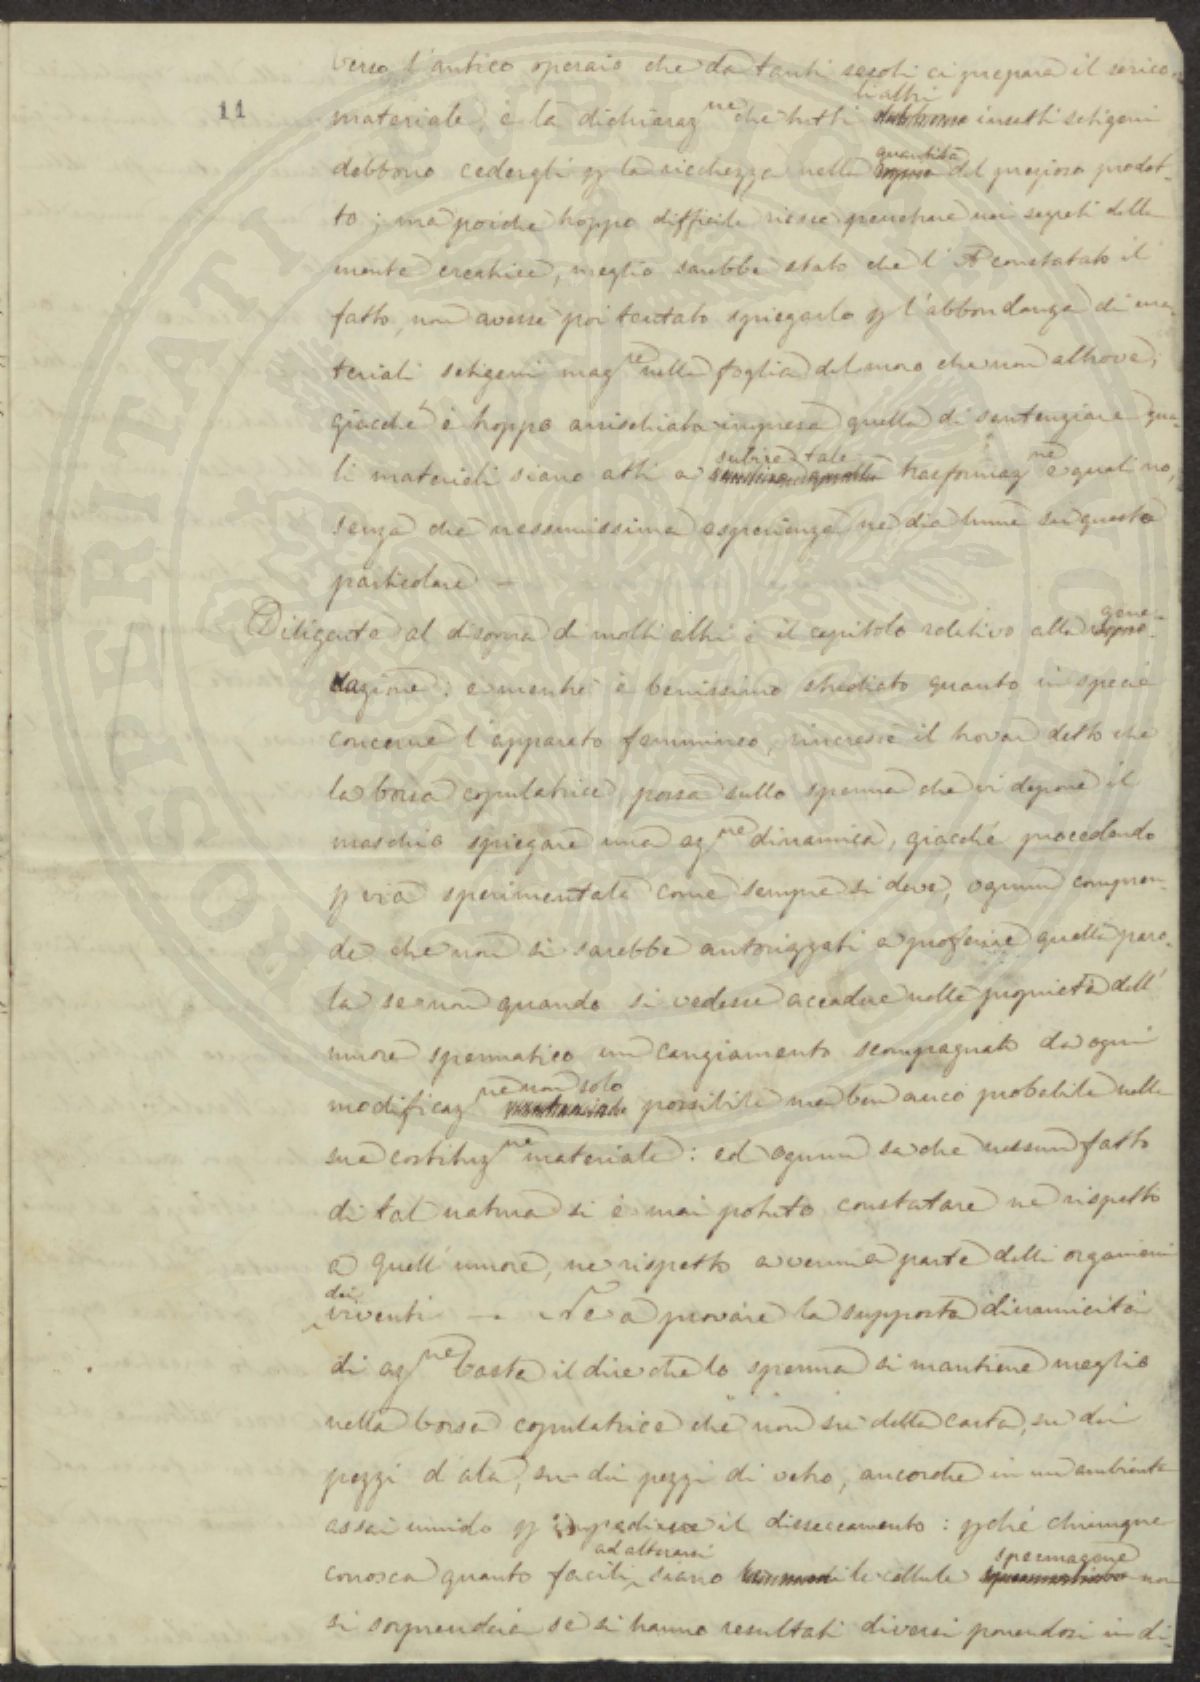 verso l'antico operaio che da tanti secoli ci prepara il serico
11
materiale, è la dichiaraz.ne che tutti li altri insetti setigeni
debbono cedergli p la ricchezza nella quantità del prezioso prodot-
to; ma poiche troppo difficile riesce penetrare nei segreti della
mente creatrice, meglio sarebbe stato che l'A constatato il
fatto, non avesse poi tentato spiegarlo p l'abbondanza di ma-
teriali setigeni mag.re nella foglia del moro che non altrove;
giacchè è troppo arrischiata impresa quella di sentenziare qua-
li materiali siano atti a subire tale trasformaz.ne e quali no,
senza che nessunissima esperienza ne dia lume su questo
particolare —
Diligente al disopra di molti altri è il capitolo relativo alla gene-
razione: e mentre è benissimo studiato quanto in specie
concerne l'apparato femmineo, rincresce il trovar detto che
la borsa copulatrice possa sullo sperma che vi depone il
maschio spiegare una az.ne dinamica, giacchè procedendo
p via sperimentale come sempre si deve, ognun compren-
de che non si sarebbe autorizzati a proferire quella paro-
la se non quando si vedesse accadere nelle proprietà dell'
umore spermatico un cangiamento scompagnato da ogni
modificaz.ne non solo possibile ma ben anco probabile nella
sua costituz.ne materiale: ed ognun sa che nessun fatto
di tal natura si è mai potuto constatare ne rispetto
a quell'umore, ne rispetto a veruna parte delli organismi
dei viventi — Ne a provare la supposta dinamicità
di az.ne basta il dire che lo sperma si mantiene meglio
nella borsa copulatrice che non su della carta, su dei
pezzi d'ala, su dei pezzi di vetro, ancorche in un ambiente
assai umido p impedirne il disseccamento: pchè chiunque
conosca quanto facili ad alterarsi siano le cellule spermagene non
si sorprenderà se si hanno resultati diversi ponendosi in di-
PROSPERITATI PUBLICAE